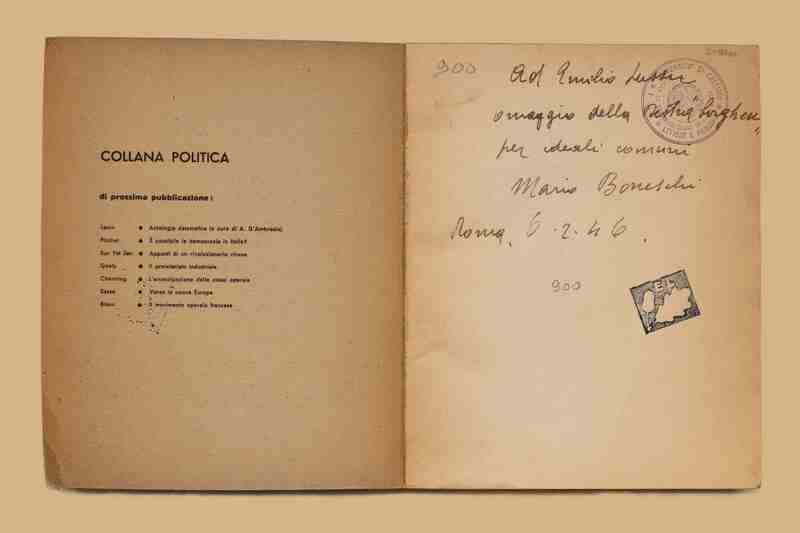 COLLANA POLITICA
di prossima pubblicazione:
Lenin • Antologia sistematica (a cura di A. D'Ambrosio)
Fischer • È possibile la democrazia in Italia?
Sun Yat Sen • Appunti di un rivoluzionario cinese
• Il proletariato industriale
Channing • L'emancipazione della classe operaia
• Verso la nuova Europa
• Il movimento operaio francese
900
Ad Emilio Lussu
omaggio della
per ideali comuni
Mario Boneschi
Roma, 6.2.46.
900